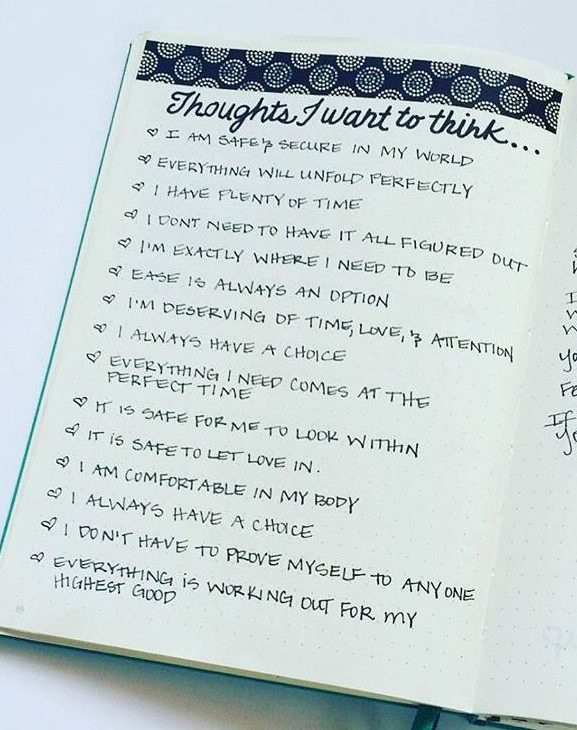 Thoughts I want to think...
I AM SAFE & SECURE IN MY WORLD
EVERYTHING WILL UNFOLD PERFECTLY
I HAVE PLENTY OF TIME
I DONT NEED TO HAVE IT ALL FIGURED OUT
I'M EXACTLY WHERE I NEED TO BE
EASE IS ALWAYS AN OPTION
I'M DESERVING OF TIME, LOVE, & ATTENTION
I ALWAYS HAVE A CHOICE
EVERYTHING I NEED COMES AT THE
PERFECT TIME
IT IS SAFE FOR ME TO LOOK WITHIN
IT IS SAFE TO LET LOVE IN.
I AM COMFORTABLE IN MY BODY
I ALWAYS HAVE A CHOICE
I DON'T HAVE TO PROVE MYSELF TO ANYONE
EVERYTHING is WORKING OUT FOR MY
HIGHEST GOOD